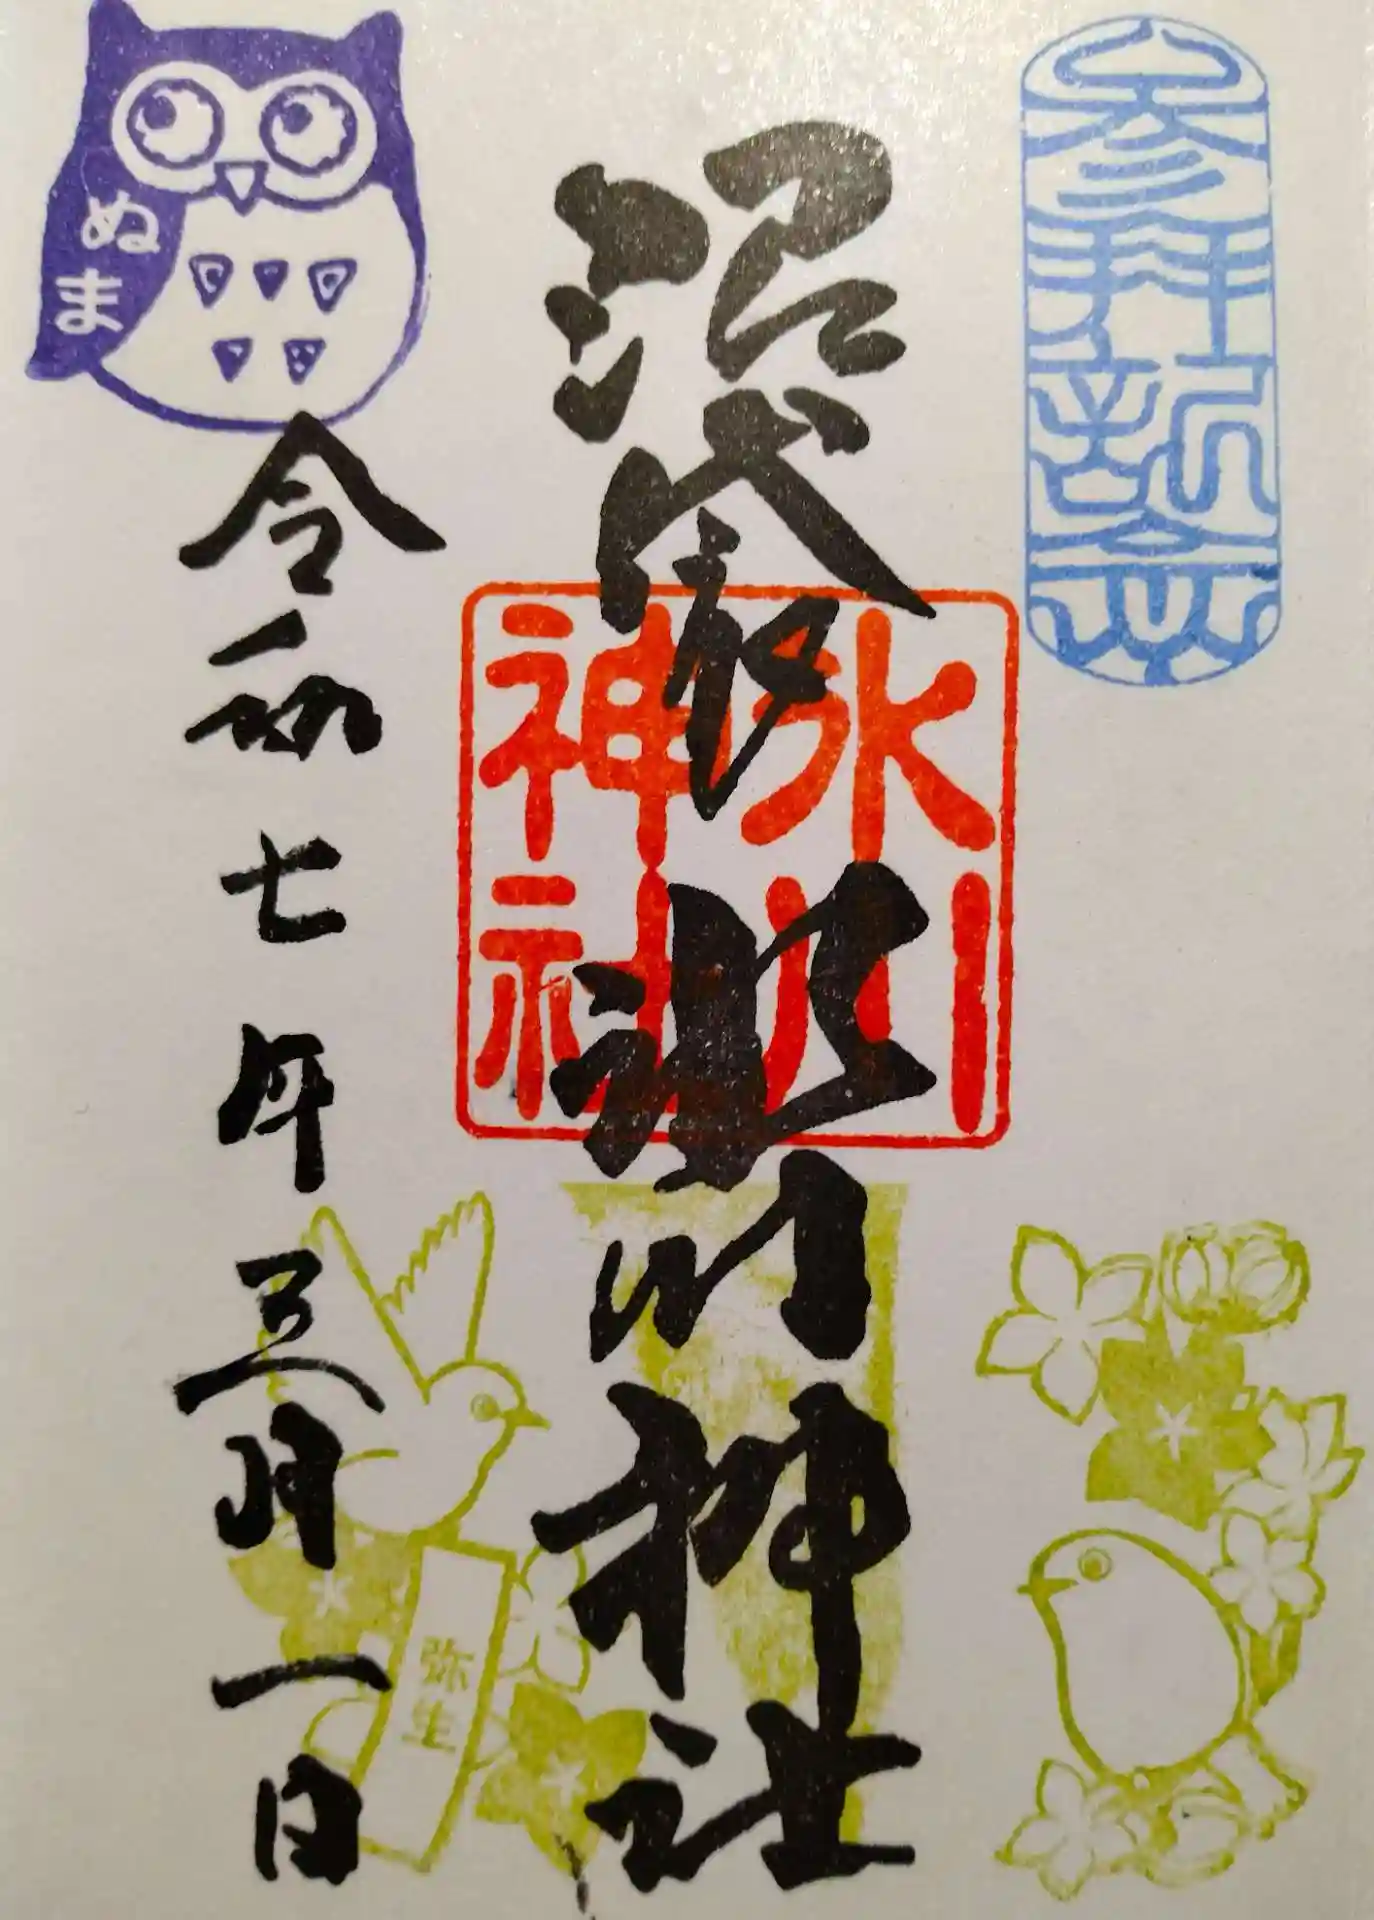 参拝記念
沼袋氷川神社
氷川神社
令和七年三月一日
ぬま
弥生